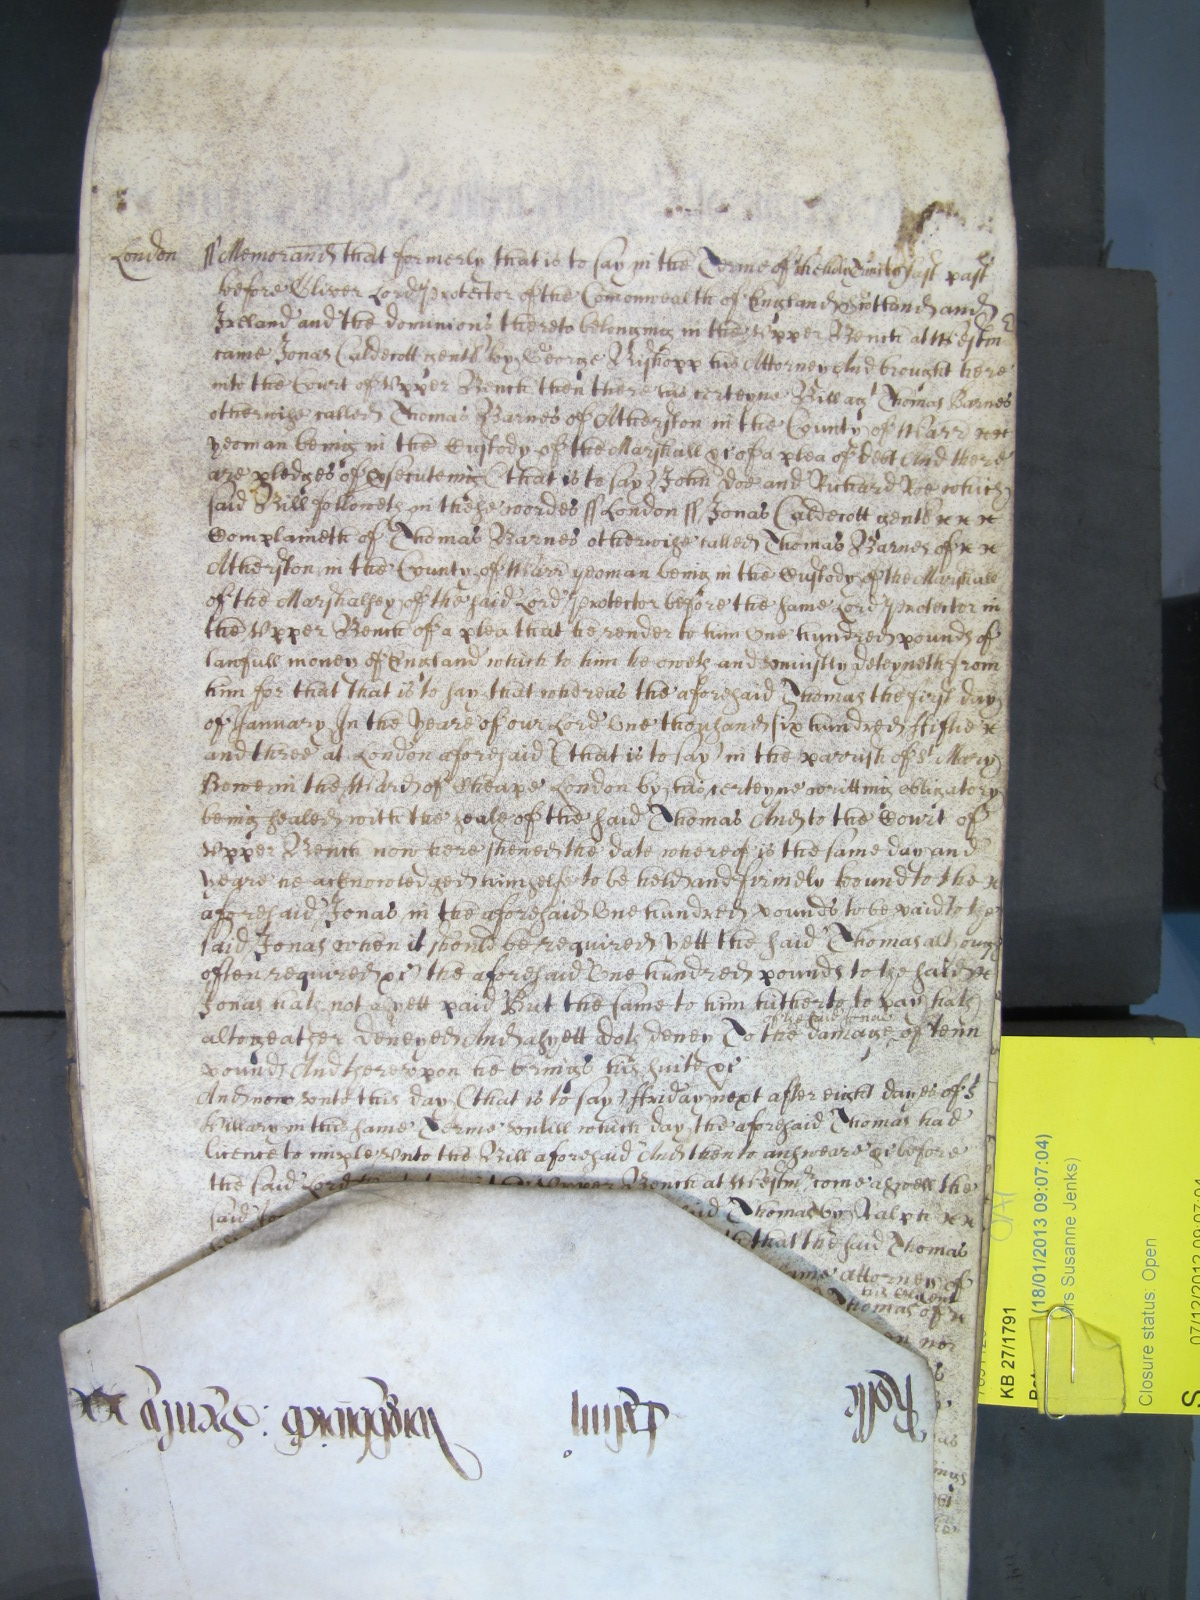 London ss Memorand that formerly that is to say in the Terme of the holy Trinity last past
before Oliver Lord Protector of the Comonwealth of England Scotland and
Ireland and the dominions thereto belonging in the Upper Bench at Westm
came Jonas Caldecott gent by George Bishopp his Attorney And brought here
into the Court of Upper Bench then there his certeyne Bill agt Thomas Barnes
otherwise called Thomas Barnes of Atherston in the County of Warr
yeoman being in the Custody of the Marshall &c of a plea of debt And there
are pledges of prosecuteing (that is to say) John Doe and Richard Roe which
said Bill followeth in these wordes ss London ss Jonas Caldecott gent
Complaineth of Thomas Barnes otherwise called Thomas Barnes of
Atherston in the County of Warr yeoman being in the Custody of the Marshall
of the Marshalsey of the said Lord Protector before the same Lord Protector in
the Upper Bench of a plea that he render to him One hundred pounds of
lawfull money of England which to him he oweth and uniustly deteyneth from
him for that that is to say that whereas the aforesaid Thomas the first day
of January In the yeare of our Lord One thousand six hundred ffiftie
and three at London aforesaid (that is to say) in the parrish of St Mary
Bowe in the Ward of Cheape London by his certeyne writting obligatory
being sealed with the seale of the said Thomas And to the Court of
Upper Bench now here shewed the date whereof is the same day and
yeare he acknowledged himselfe to be held and firmely bound to the
aforesaid Jonas in the aforesaid One hundred pounds to be paid to the
said Jonas when it should be required Yett the said Thomas although
often required &c the aforesaid One hundred pounds to the said
Jonas hath not as yett paid But the same to him hitherto to pay hath
of the said Jonas
altogeather denyed And as yett doth deney To the damage of tenn
pounds And thereupon he brings his suite &c
And now unto this day (that is to say) ffriday next after eight dayes of St
Hillary in this same Terme untill which day the aforesaid Thomas had
licence to imple unto the Bill aforesaid And then to answeare &c before
the said Lord Upper Bench at Westm come aswell the
said Thomas by Ralph
that the said Thomas
same attorney of
Thomas of
nor
Rolle
KB 27/1791
(18/01/2013 09:07:04)
Mrs Susanne Jenks)
Closure status: Open